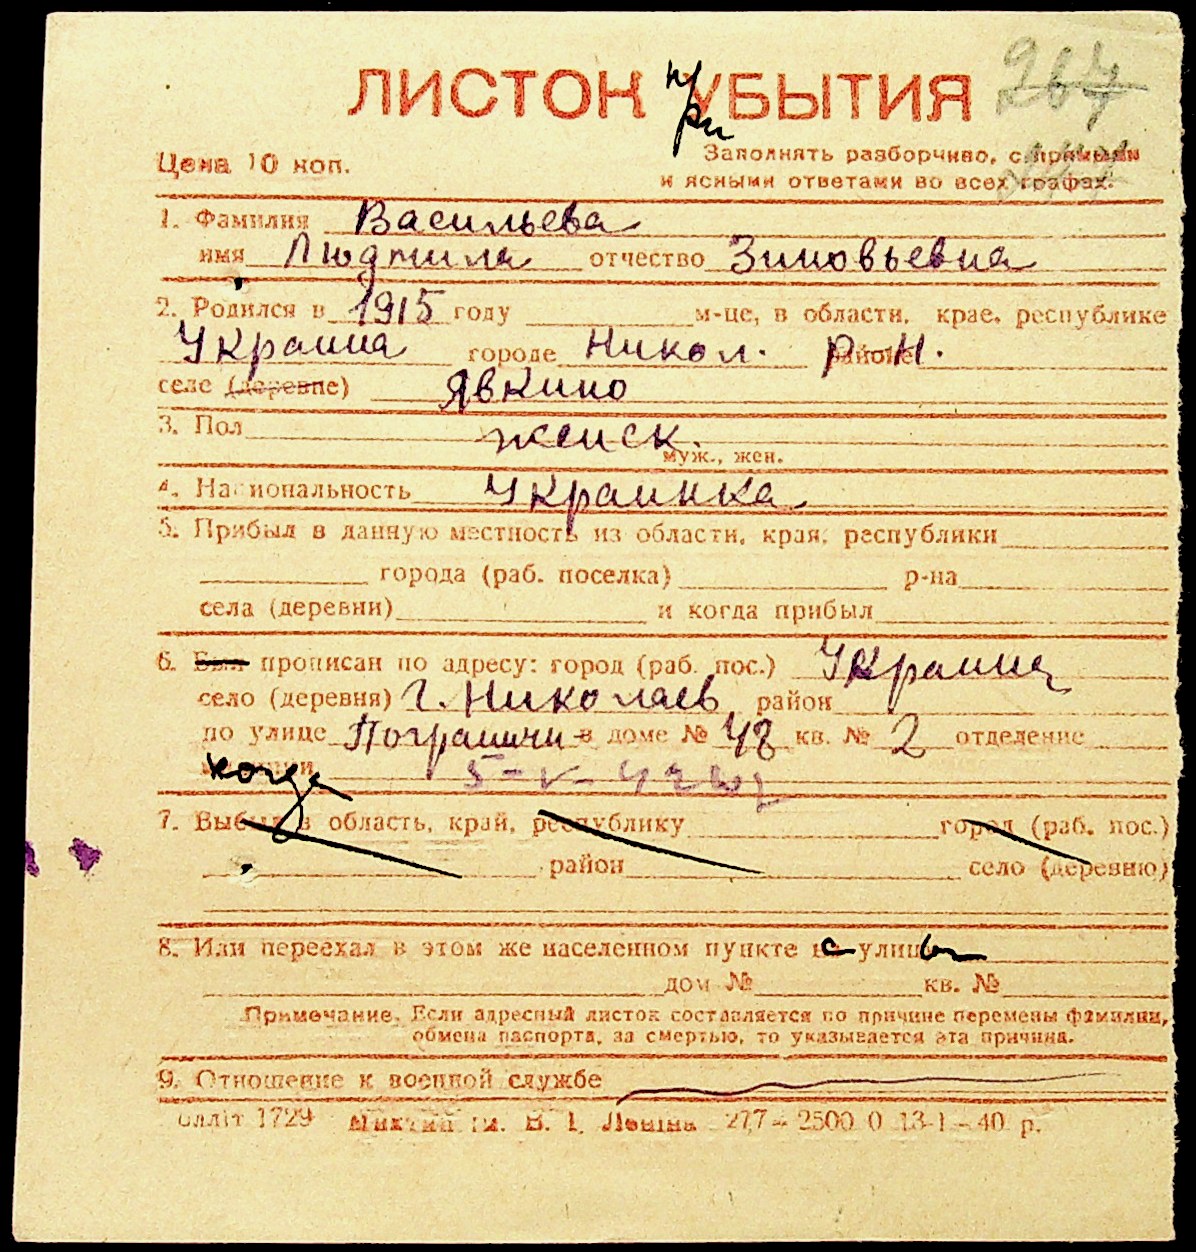 ЛИСТОК УБЫТИЯ при 267
Цена 10 коп. Заполнять разборчиво, с прямыми
и ясными ответами во всех графах.
1. Фамилия Васильева
имя Людмила отчество Зиновьевна
2. Родился в 1915 году м-це, в области, крае, республике
Украина городе Никол. районе р-н.
селе (деревне) Явкино
3. Пол женск.
муж., жен.
4. Национальность Украинка
5. Прибыл в данную местность из области, края, республики
города (раб. поселка) р-на
села (деревни) и когда прибыл
6. Был прописан по адресу: город (раб. пос.) Украина
село (деревня) г. Николаев район
по улице Погранични в доме № 48 кв. № 2 отделение
когда 5-V-42
7. Выбыл в область, край, республику город (раб. пос.)
район село (деревню)
8. Или переехал в этом же населенном пункте с улицы
дом № кв. №
Примечание. Если адресный листок составляется по причине перемены фамилии,
обмена паспорта, за смертью, то указывается эта причина.
9. Отношение к военной службе
1729 ім. В. І. Леніна 277 – 2500 0 13-1 – 40 р.